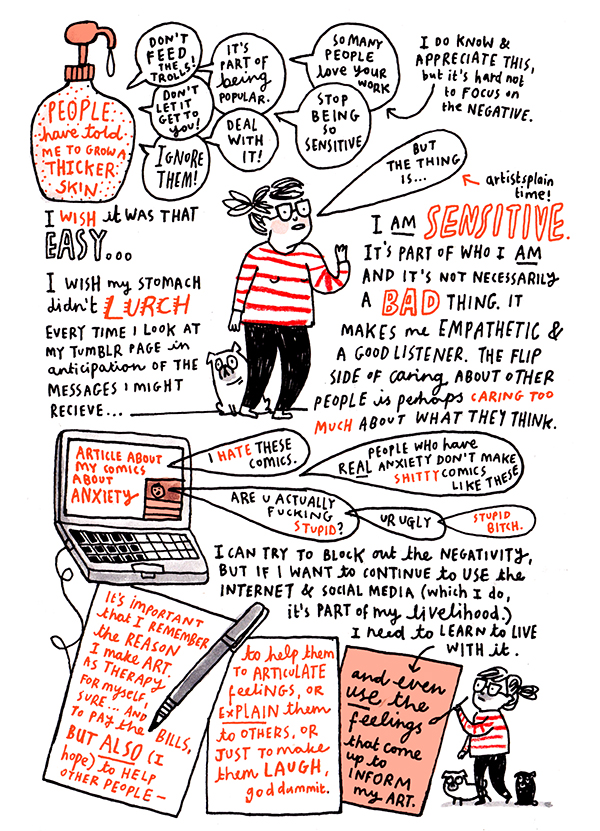 PEOPLE
have told
ME TO GROW A
THICKER
SKIN
DON'T
FEED
THE
TROLLS!
IT'S
PART OF
being
POPULAR.
SO MANY
PEOPLE
love YOUR
WORK
DON'T
LET IT
GET TO
YOU!
DEAL
WITH
IT!
STOP
BEING
SO
SENSITIVE
IGNORE
THEM!
I DO KNOW &
APPRECIATE THIS,
but it's hard not
to FOCUS on
the NEGATIVE.
BUT
THE THING
IS...
artistsplain
time!
I WISH it WAS THAT
EASY...
I WISH my STOMACH
didn't LURCH
EVERY TIME I LOOK AT
MY TUMBLR PAGE in
anticipation OF THE
MESSAGES I MIGHT
RECIEVE...
I AM SENSITIVE.
IT'S PART OF WHO I AM
AND IT'S NOT NECESSARILY
A BAD THING. IT
MAKES me EMPATHETIC &
A GOOD LISTENER. THE FLIP
SIDE OF caring ABOUT OTHER
PEOPLE is perhaps CARING TOO
MUCH ABOUT WHAT THEY THINK.
ARTICLE ABOUT
MY COMICS
ABOUT
ANXIETY
I HATE THESE
COMICS.
PEOPLE WHO have
REAL ANXIETY DON'T MAKE
SHITTY COMICS
LIKE THESE
ARE U ACTUALLY
FUCKING
STUPID?
UR UGLY
STUPID
BITCH.
I CAN TRY TO BLOCK out the NEGATIVITY,
BUT IF I WANT to CONTINUE to USE the
INTERNET & SOCIAL MEDIA (which I do,
it's PART OF my livelihood.)
I need to LEARN to LIVE
WITH it.
IT'S IMPORTANT
that I REMEMBER
the REASON
I MAKE ART
AS THERAPY
FOR MYSELF,
SURE... AND
TO PAY the BILLS,
BUT ALSO (I
hope) to HELP
OTHER PEOPLE—
to help them
TO ARTICULATE
feelings, OR
EXPLAIN them
to OTHERS, OR
JUST TO make
them LAUGH,
god dammit.
and even
USE the
feelings
that come
up to
INFORM
my ART.